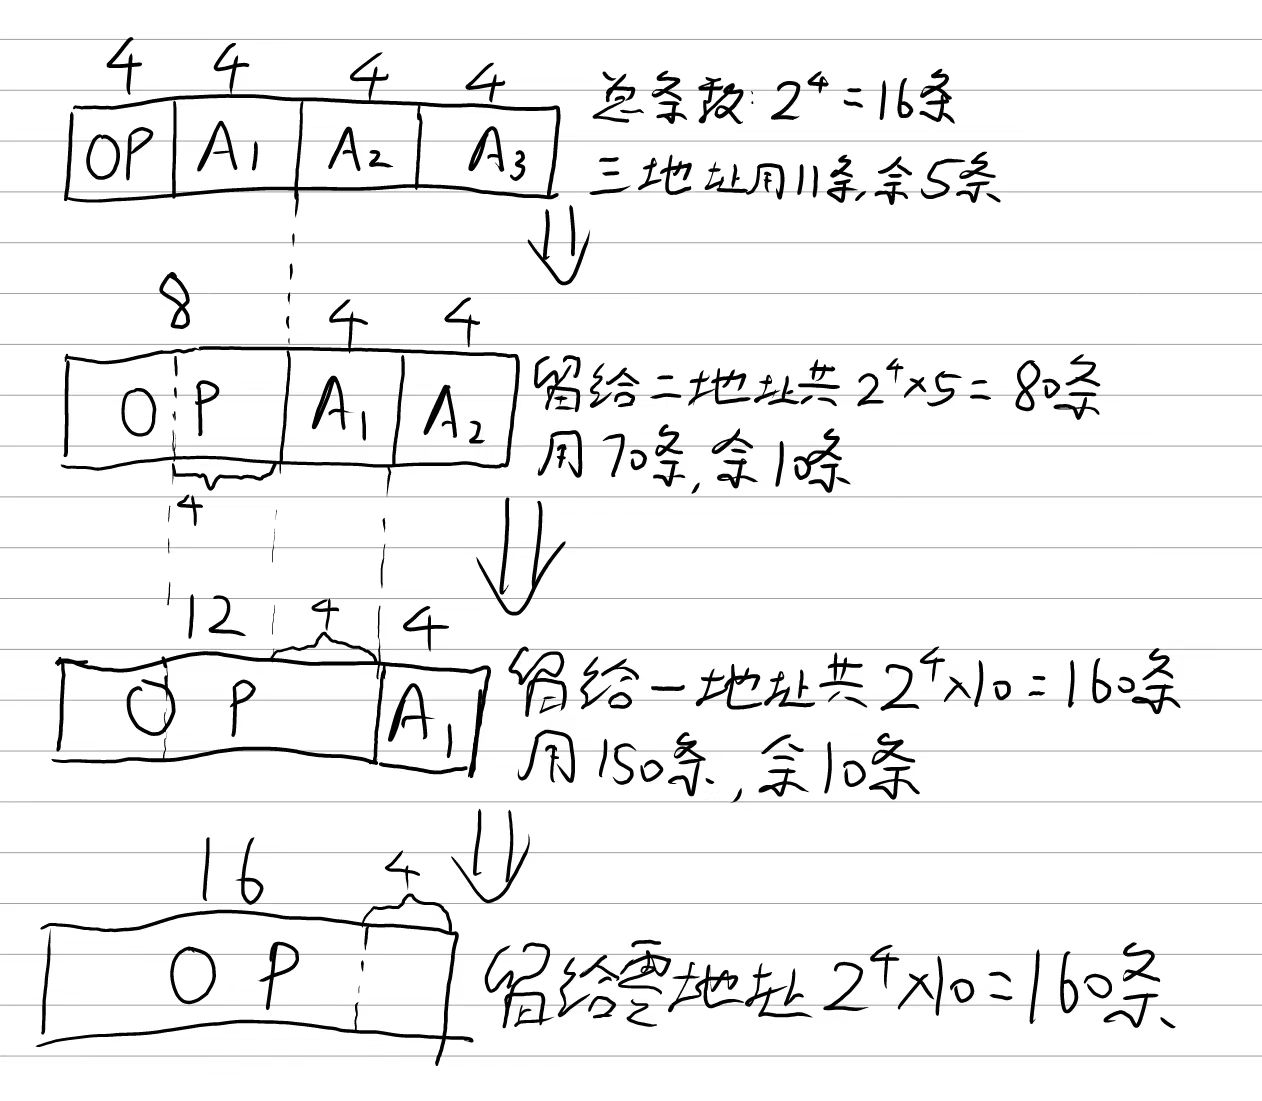 4 4 4 4
OP A1 A2 A3
总条数: 2⁴=16条
三地址用11条,余5条
8 4 4
OP A1 A2
4
留给二地址共2⁴×5=80条
用70条,余10条
12 4 4
OP A1
留给一地址共2⁴×10=160条
用150条,余10条
16 4
OP
留给零地址2⁴×10=160条